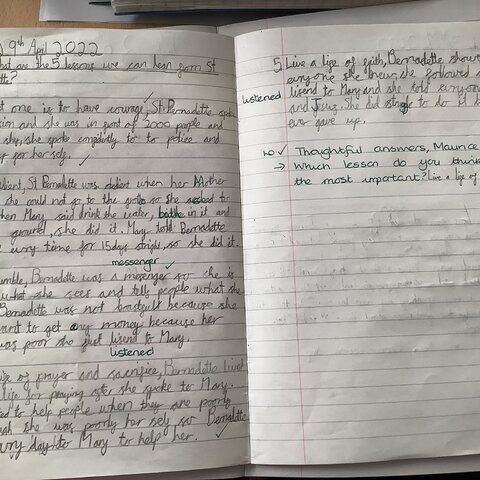 9th April 2022
hat are the 5 lessons we can lean from St
tte?
t one is to have courage, St Bernadette
sion and she was in front of 2000 people and
shy, she spoke conpidently to to police and
up for her self.
St Bernadette was obdient when her Mother
she could not go to the so she
hen Mary said drink the water, bathe in it and
ground, she did it. Mary told Bernadette
every time for 15 days so she did it.
messenger
umble, Bernadette was a messenger so she is
what she sees and tells people what she
Bernadette was not because she
ant to get any money because her
was poor she just lisend to Mary.
listened
ife of prayer and sacrifice, Bernadette lived
life for praying after she spoke to Mary.
ed to help people when they are poorly
gh she was poorly her self so Bernadette
every day to Mary to help her.
5 Live a life of faith, Bernadette show
evryone she she followed
listened
lisend to Mary and she told evryone
and Jesus. She did to do it
ever gave up.
Thoughtful answers, Maurice
→ Which lesson do you think
the most important? Live a life of